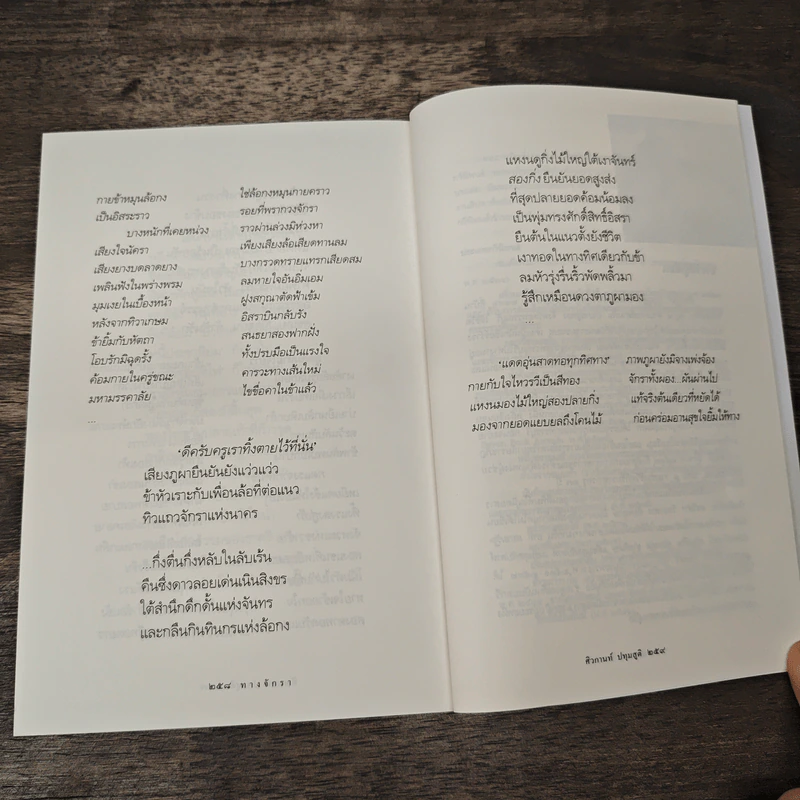 กายข้าหมุนล้อกง ใช่ล้อกงหมุนกายคราว
เป็นอิสระราว รอยที่พรากวงจักรา
บางหนักที่เคยหน่วง ราวผ่านล่วงมิห่วงหา
เสียงใจนัครา เพียงเสียงล้อเสียดทานลม
เสียงยางบดลาดยาง บางกรวดทรายแทรกเสียดสม
เพลินฟังในพร่างพรม ลมหายใจอันอิ่มเอม
มุมเงยในเบื้องหน้า ฝูงสกุณาตัดฟ้าเข้ม
หลังจากทิวาเกษม อิสราบินกลับรัง
ข้ายิ้มกับหัตถา สนธยาสองฟากฝั่ง
โอบรักมิฉุดรั้ง ทั้งปรบมือเป็นแรงใจ
ค้อมกายในครู่ขณะ คารวะทางเส้นใหม่
มหามรรคาลัย ไขชื่อคาในข้าแล้ว
...
'ดีครับครูเราทิ้งตายไว้ที่นั่น'
เสียงภูผายืนยันยังแว่วแว่ว
ข้าหัวเราะกับเพื่อนล้อที่ต่อแนว
ทิวแถวจักราแห่งนาคร
...กึ่งตื่นกึ่งหลับในลับเร้น
คืนซึ่งดาวลอยเด่นเนินสิงขร
ใต้สำนึกดึกดั้นแห่งจันทร
และกลืนกินทินกรแห่งล้อกง
๒๕๘ ทางจักรา
แหงนดูกิ่งไม้ใหญ่ใต้เงาจันทร์
สองกิ่ง ยืนยันยอดสูงส่ง
ที่สุดปลายยอดค้อมน้อมลง
เป็นพุ่มทรงศักดิ์สิทธิ์อิสรา
ยืนต้นในแนวตั้งยังชีวิต
เงาทอดในทางทิศเดียวกับข้า
ลมหัวรุ่งรื่นริ้วพัดพลิ้วมา
รู้สึกเหมือนดวงตาภูผามอง
...
'แดดอุ่นสาดทอทุกทิศทาง' ภาพภูผายังมิจางเพ่งจ้อง
กายกับใจไหวรวีเป็นสีทอง จักราทั้งผอง...ผันผ่านไป
แหงนมองไม้ใหญ่สองปลายกิ่ง แท้จริงต้นเดียวที่หยัดได้
มองจากยอดแยบยลถึงโคนไม้ ก่อนคร่อมอานสุขใจยิ้มให้ทาง
ศิวกานท์ ปทุมสูติ ๒๕๙